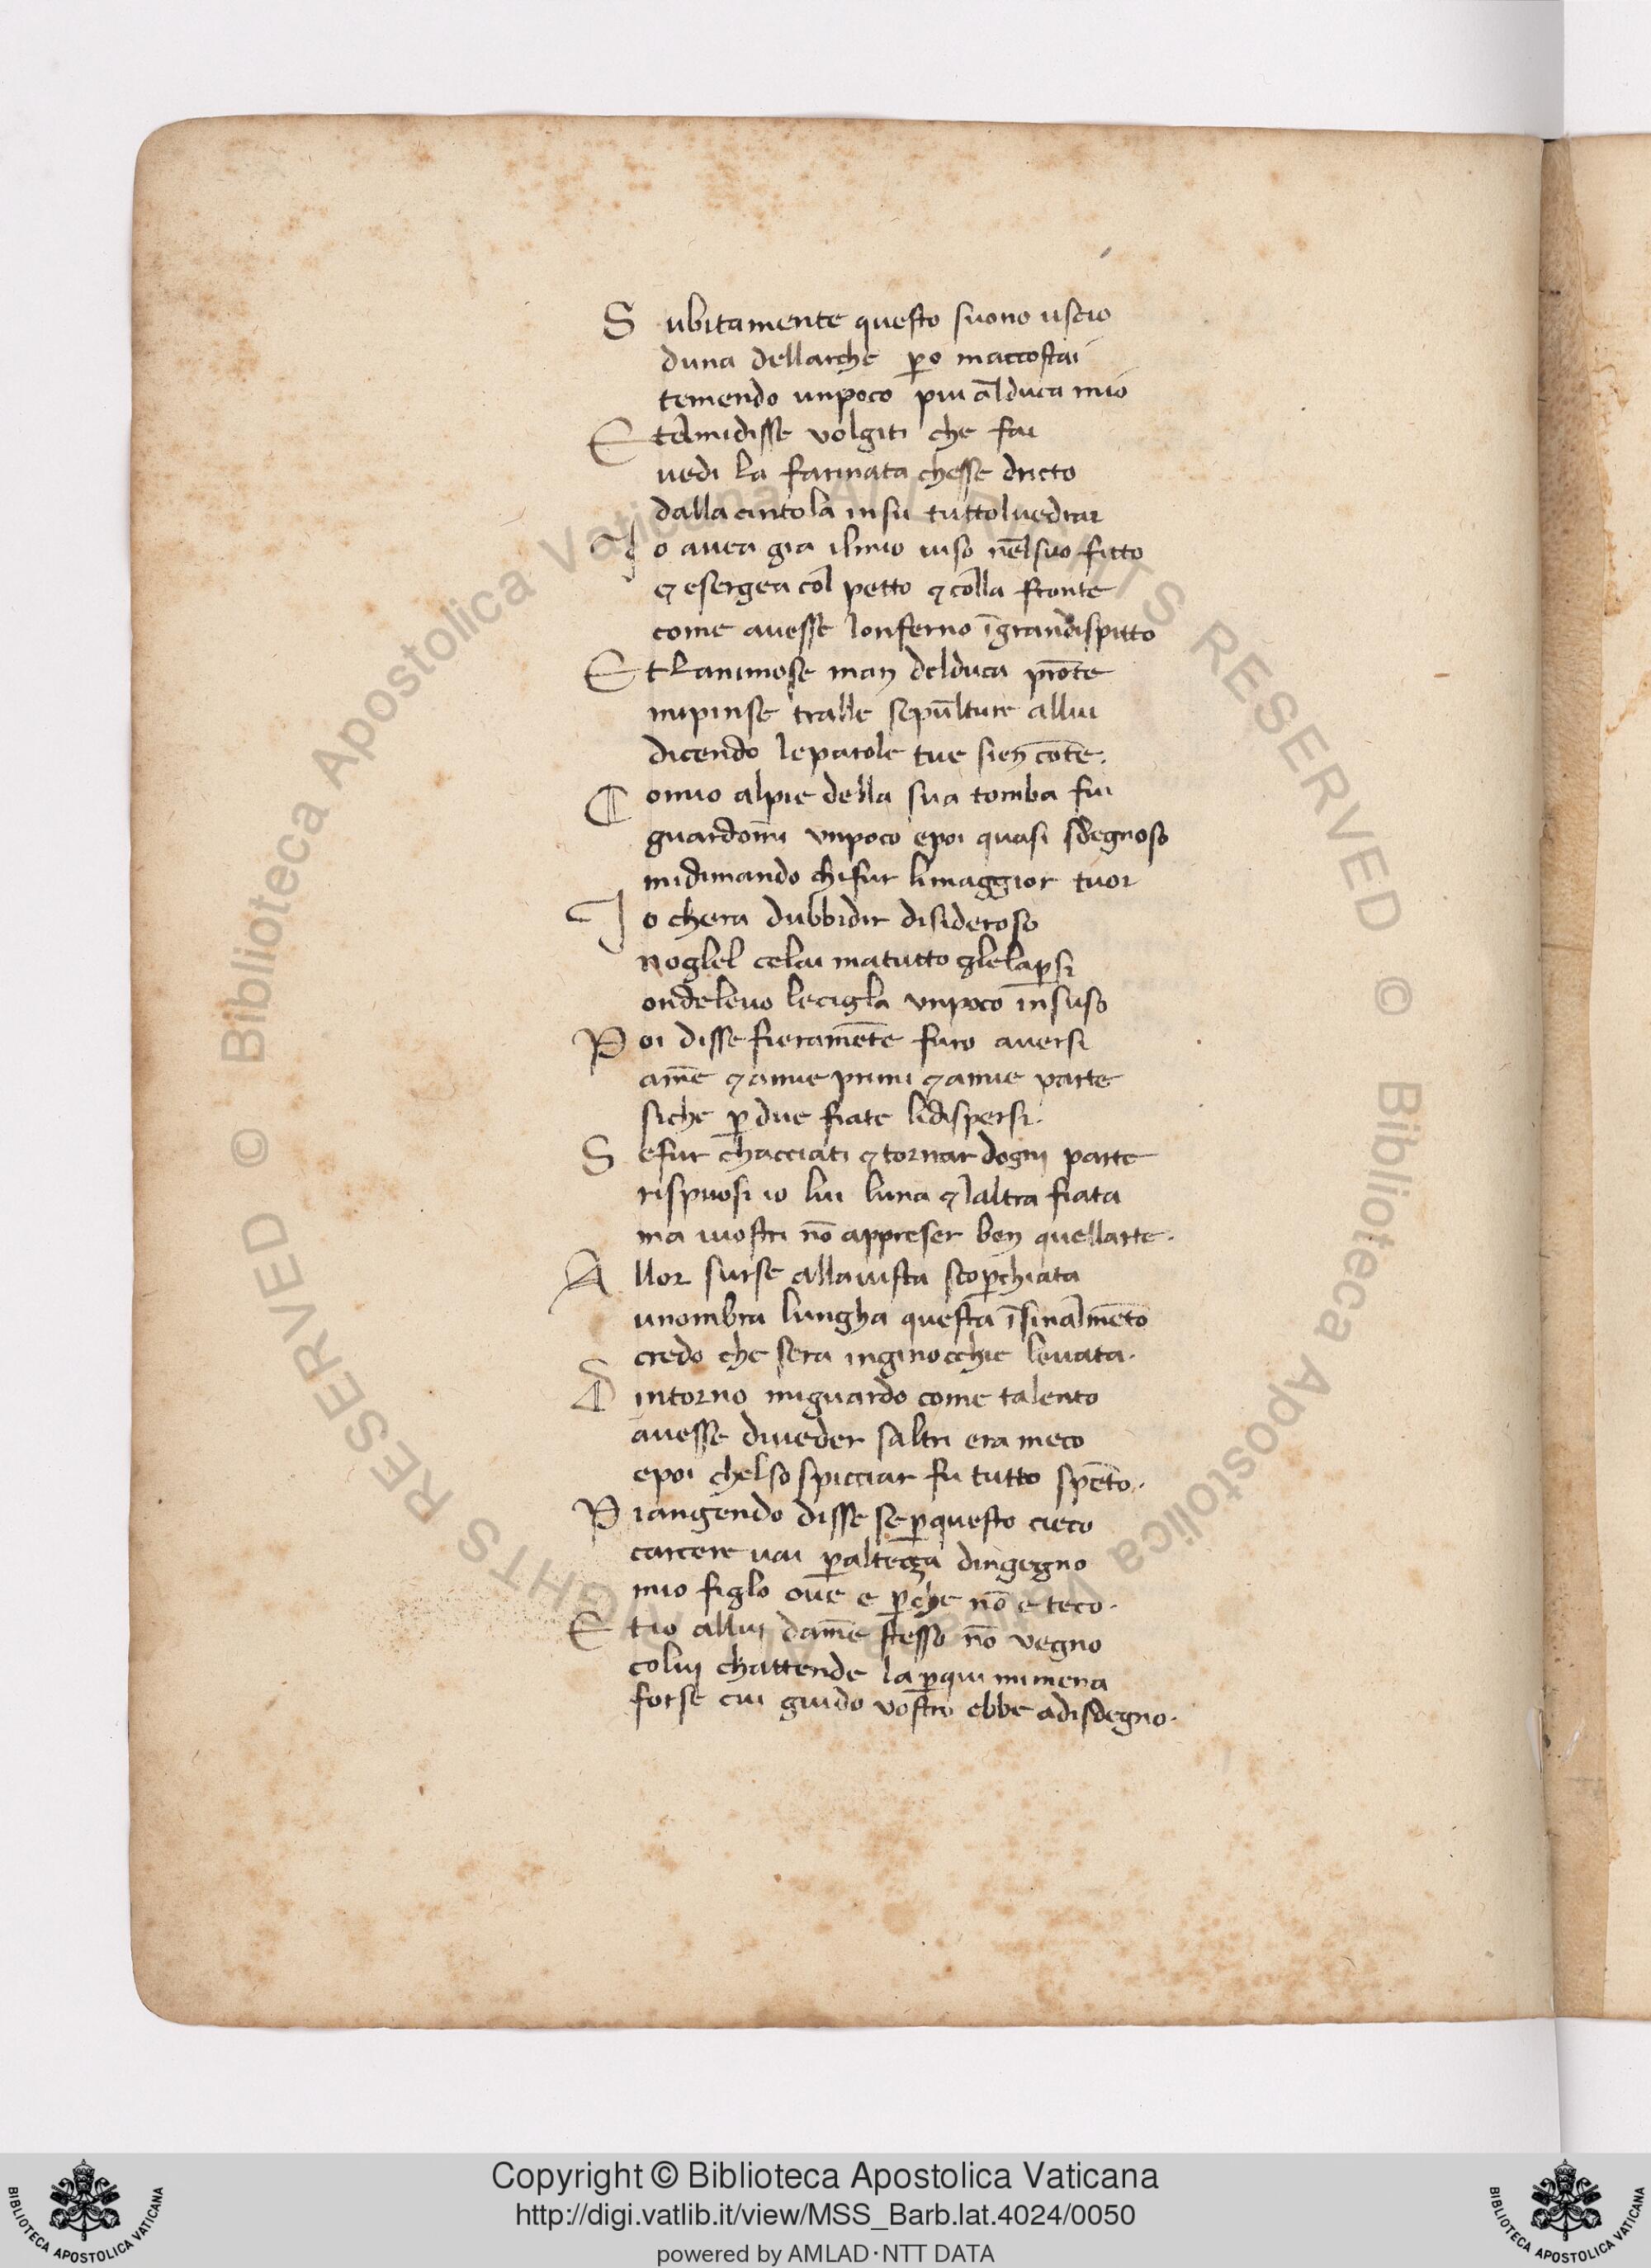 S ubitamente questo suono uscio
duna dellarche ꝑo maccostai
temendo unpoco piu al duca mio
E telmidisse volgiti che fai
uedi la farinata chesse dricto
dalla cintola insu tuttoluedrai
I o auea gia ilmio uiso nel suo fitto
⁊ esergea col petto ⁊ colla fronte
come auesse lonferno īgrandispitto
E tlanimose man delduca prōte
mipinse tralle sepulture allui
dicendo leparole tue sien cōte.
C omio alpie della sua tomba fui
guardomi vnpoco epoi quasi sdegnoso
midimando chifur limaggior tuoi
I o chera dubbidir disideroso
noglel celai matutto glelaꝑsi
ondeleuo lecigla vnpoco insuso
P oi disse fieramēte furo auersi
ame ⁊ amie primi ⁊ amie parte
siche ꝑ due fiate lidispersi.
S efur chacciati ⁊ tornar dogni parte
rispuosi io lui luna ⁊ laltra fiata
ma uiostri nō appreser ben quellarte.
A llor surse allauista scoꝑchiata
unombra lungha questa īsinalmēto
credo che sera inginocchie leuata.
D intorno miguardo come talento
auesse diueder saltri era meco
epoi chelsospicciar fu tutto spēto.
P iangendo disse seꝑquesto cieco
carcere uai ꝑaltezza dingegno
mio figlo oue e ꝑche nō e teco.
E tio allui dame stesso nō vegno
colui chattende la ꝑqui mimena
forse cui guido vostro ebbe adisdegno.
Copyright © Biblioteca Apostolica Vaticana
http://digi.vatlib.it/view/MSS_Barb.lat.4024/0050
powered by AMLAD·NTT DATA
BIBLIOTECA APOSTOLICA VATICANA
BIBLIOTECA APOSTOLICA VATICANA